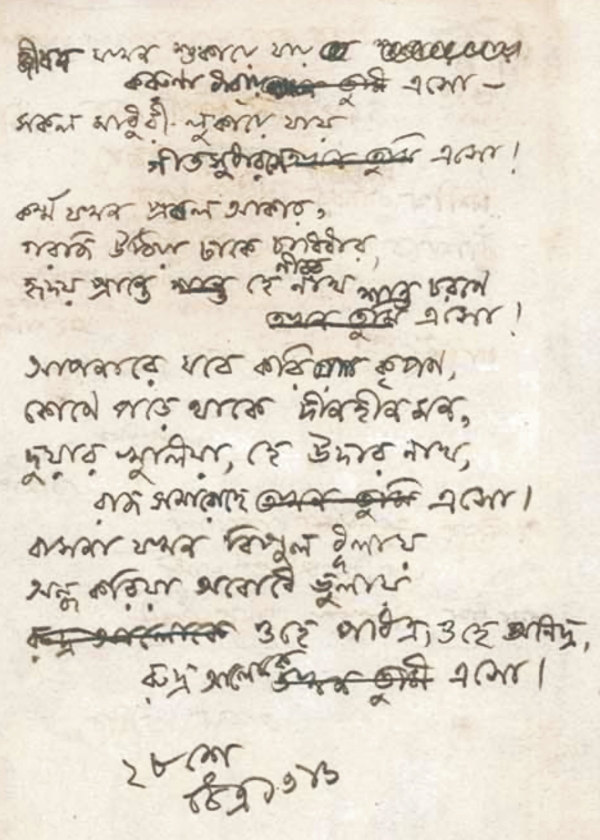 জীবন যখন শুকায়ে যায়
করুণা ধারায় তুমি এসো —
সকল মাধুরী লুকায়ে যায়
গীতসুধারসে তখন তুমি এসো!
কর্ম্ম যখন প্রবল আকার,
গরজি উঠিয়া ঢাকে চারিধার,
নীরব
হৃদয় প্রান্তে শান্ত হে নাথ শান্ত চরণে
তখন তুমি এসো!
আপনারে যবে করিয়া কৃপণ,
কোণে পড়ে থাকে দীনহীন মন,
দুয়ার খুলিয়া, হে উদার নাথ,
রাজ সমারোহে তখন তুমি এসো।
বাসনা যখন বিপুল ধূলায়
অন্ধ করিয়া অবোধে ভুলায়
রুদ্র আলোকে ওহে পবিত্র, ওহে অনিদ্র,
রুদ্র আলোকে তখন তুমি এসো।
২৮ শে
চৈত্র। ১৩১৬